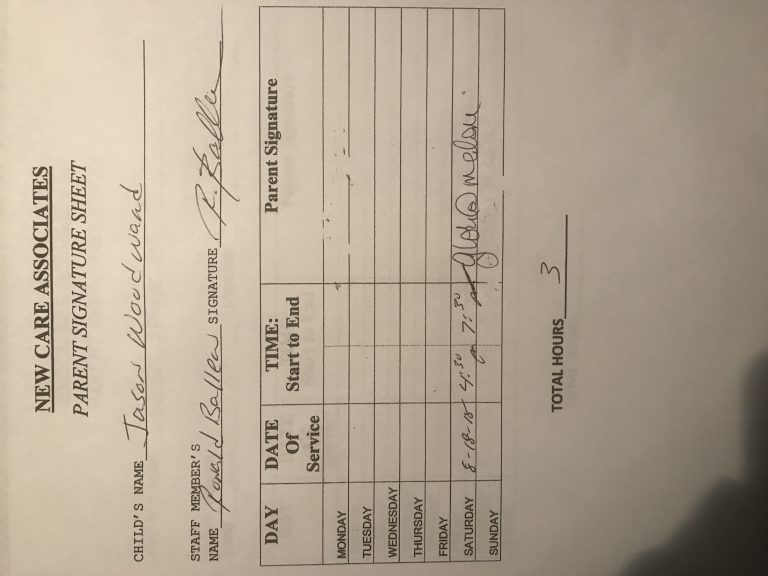 NEW CARE ASSOCIATES
PARENT SIGNATURE SHEET
CHILD'S NAME Jason Woodward
STAFF MEMBER'S
NAME Ronald Ballew SIGNATURE R. Ballew
DAY DATE Of Service TIME: Start to End Parent Signature
MONDAY
TUESDAY
WEDNESDAY
THURSDAY
FRIDAY
SATURDAY 8-18-18 4:30 7:30
SUNDAY
TOTAL HOURS 3